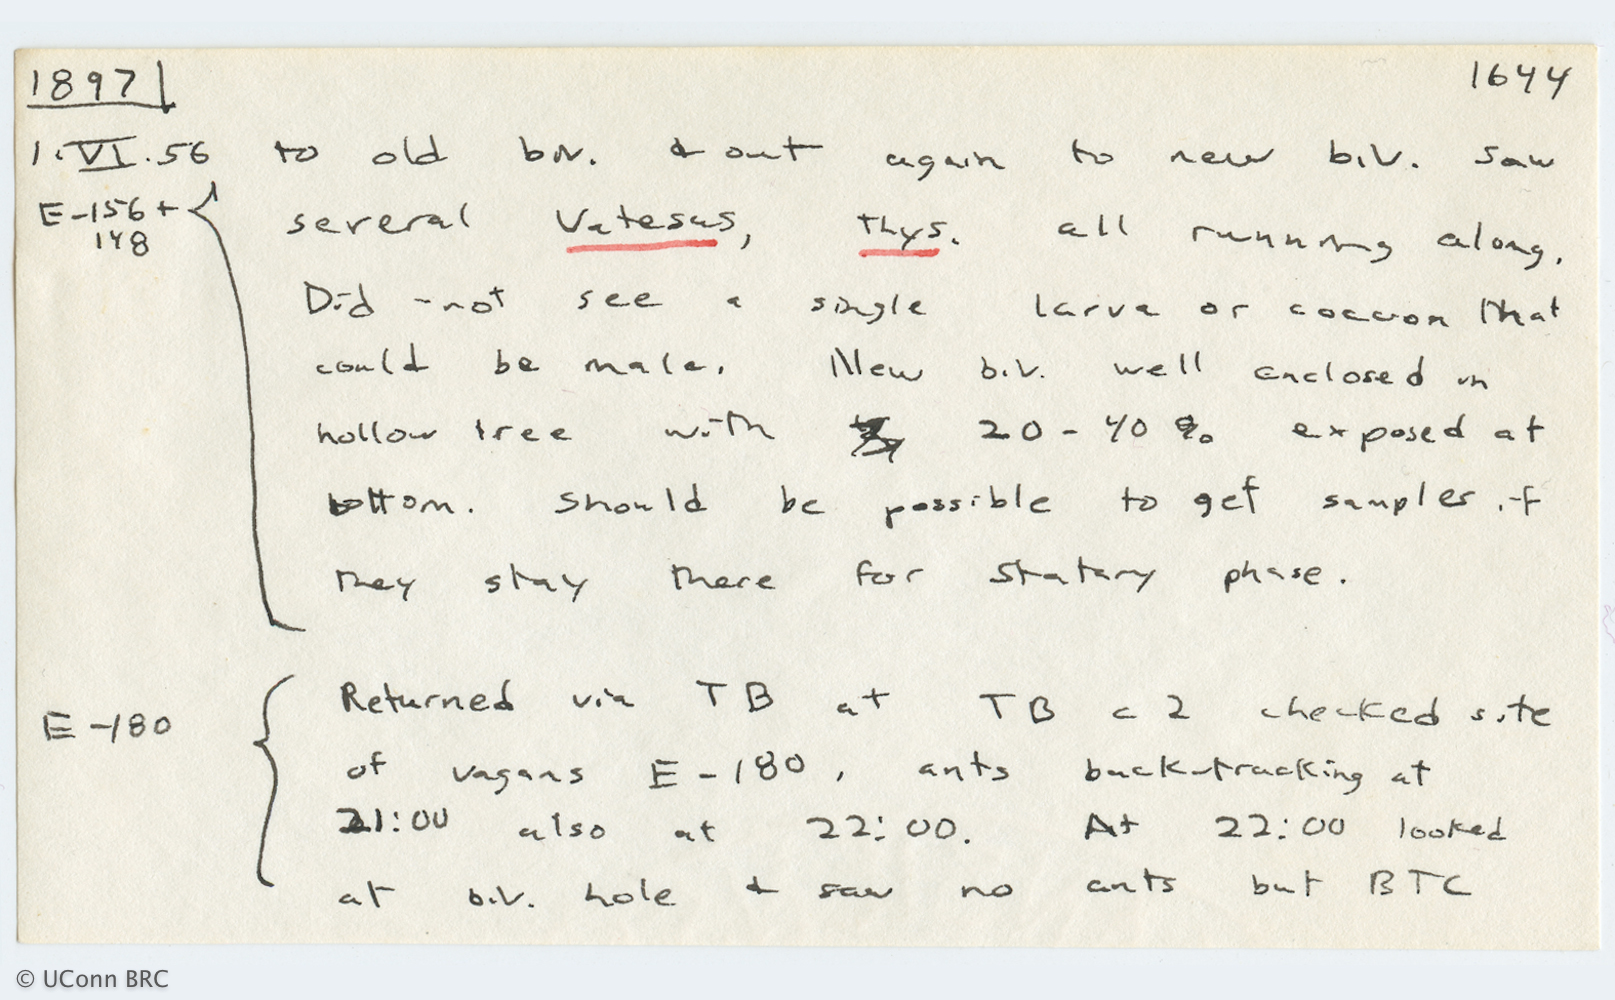 1897 1644
1.VI.56 to old biv. & out again to new biv. Saw
E-156 + several Vatesus, thys. all running along.
148
Did not see a single larva or cocoon that
could be male. New biv. well enclosed in
hollow tree with 20-40% exposed at
bottom. Should be possible to get samples if
they stay there for statary phase.
E-180 Returned via TB at TB c 2 checked site
of vagans E-180, ants back-tracking at
21:00 also at 22:00. At 22:00 looked
at biv. hole & saw no ants but BTC
© UConn BRC